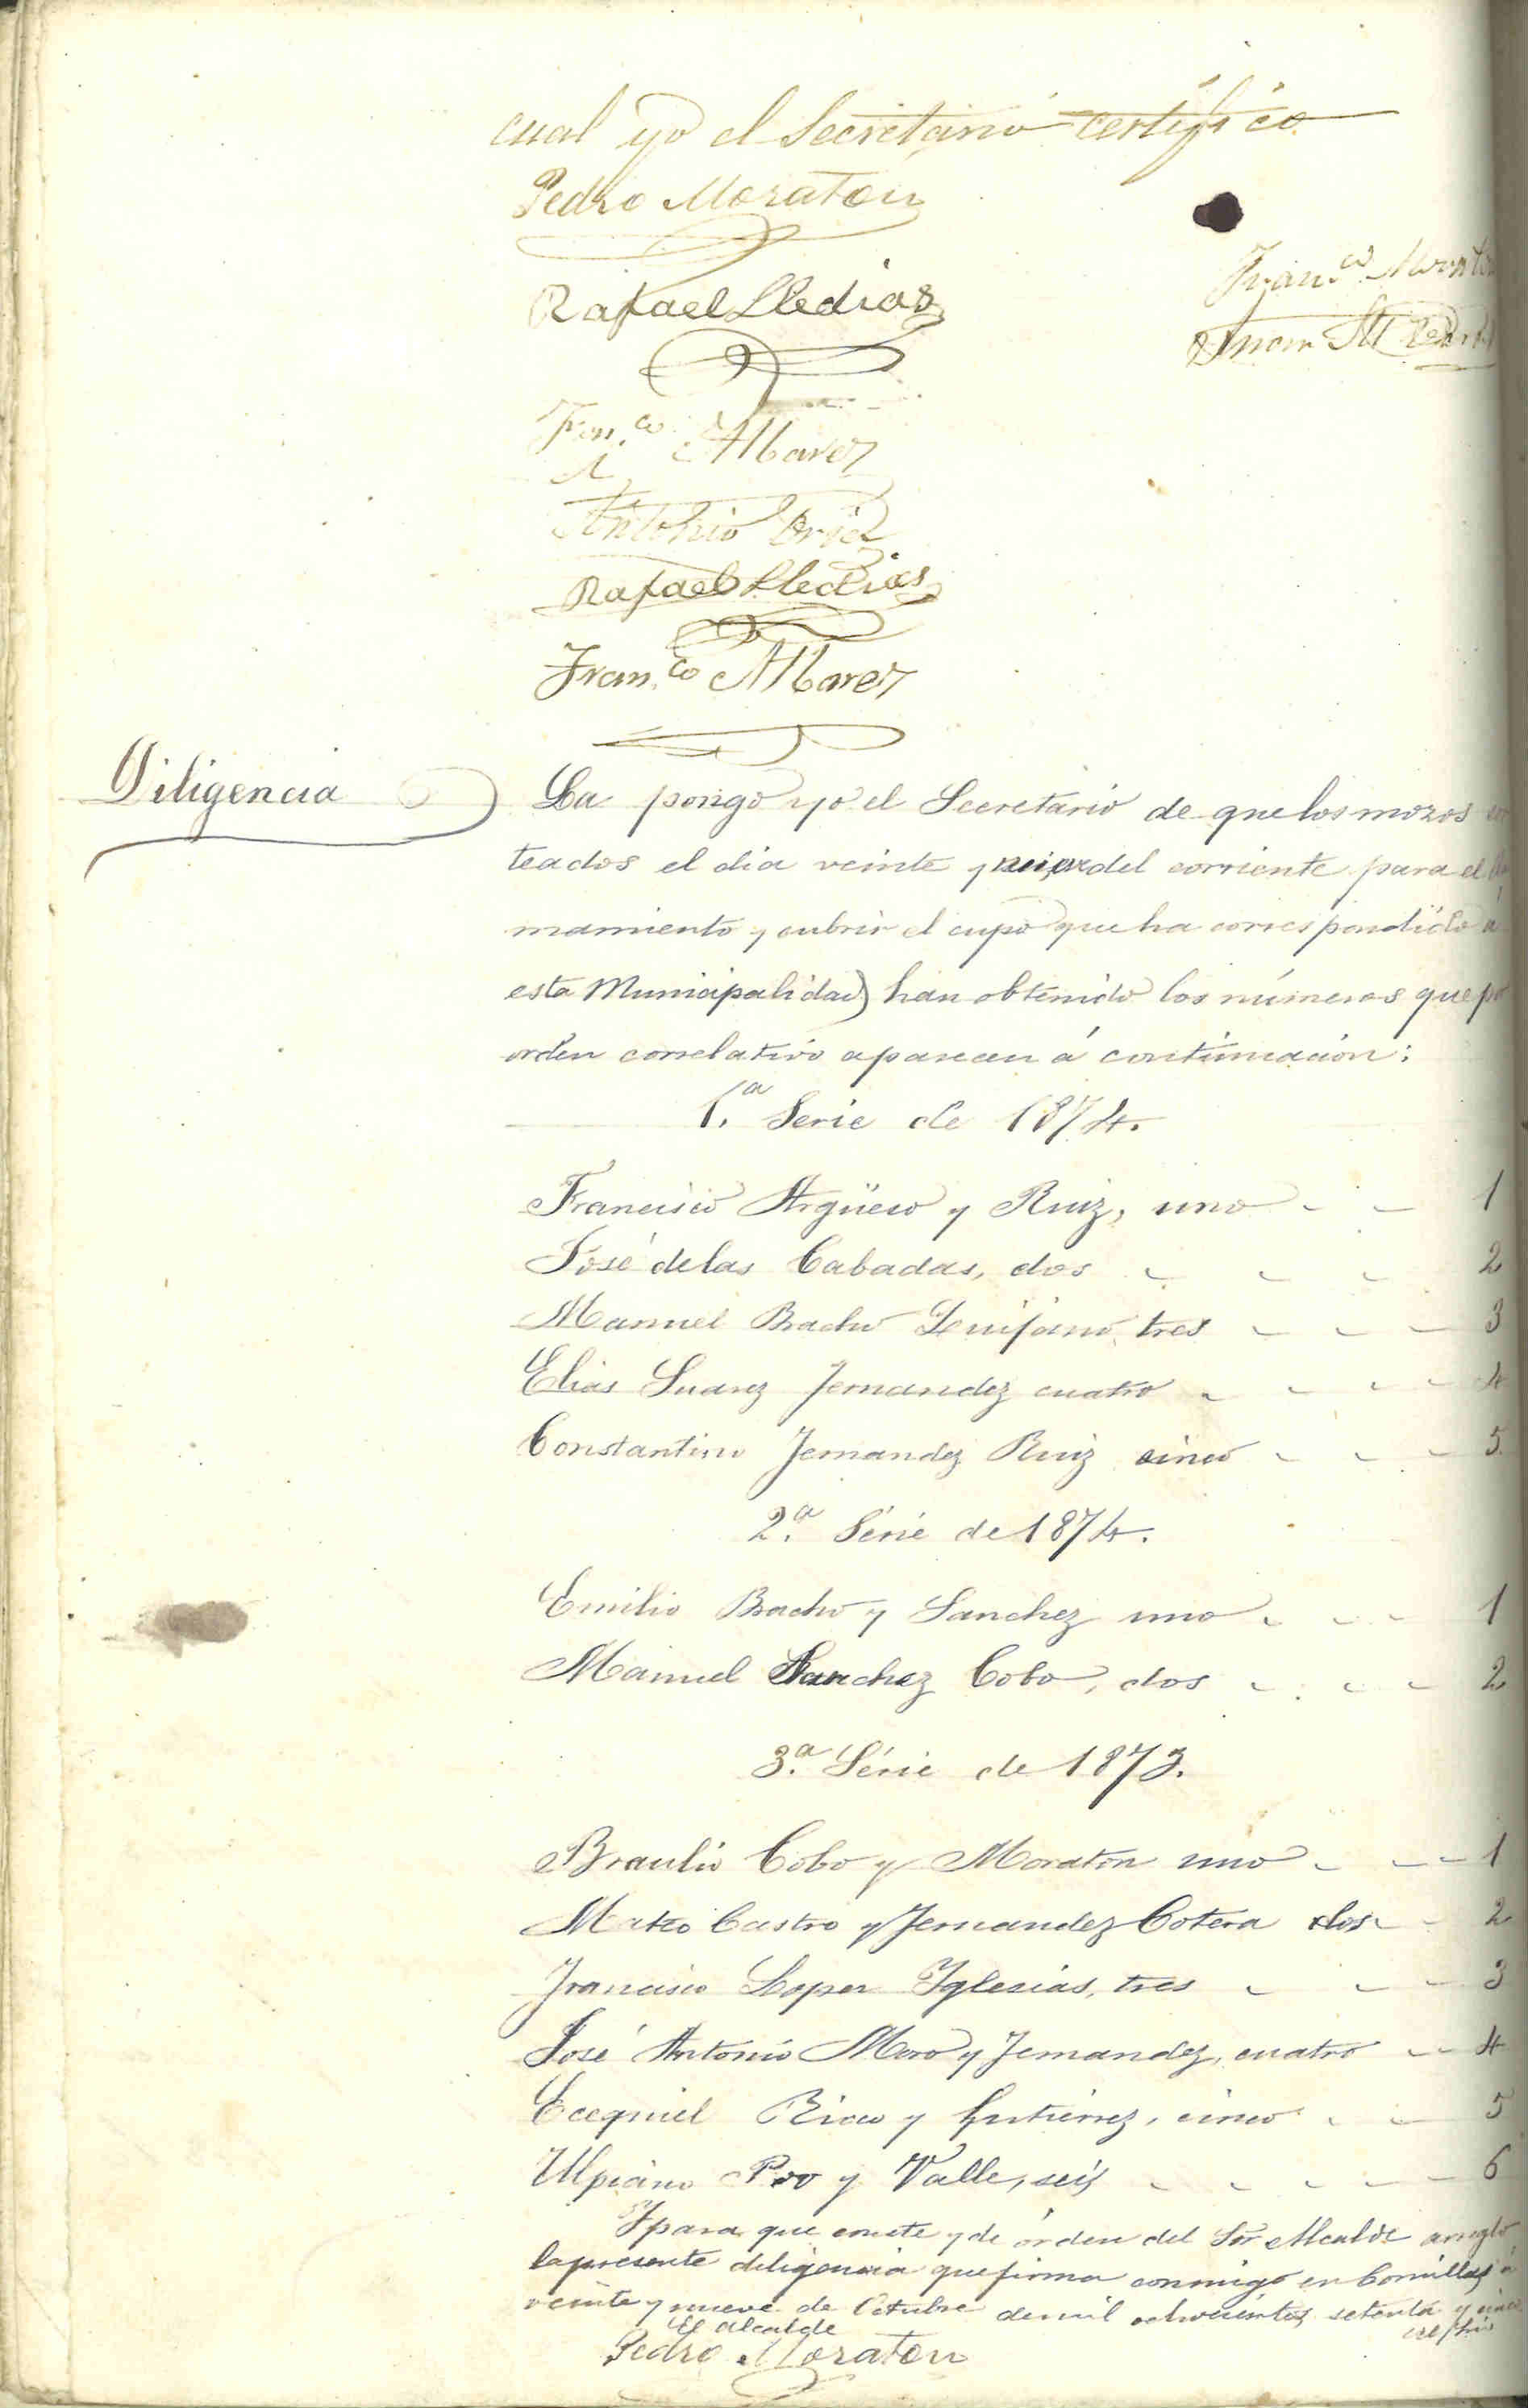 cual yo el Secretario certifico.
Pedro Moraton
Rafael Lledias
Fran.co
Juan M
Fran.co Albarez
Antonio
Rafael Lledias
Fran.co Albarez
Diligencia
La pongo yo el Secretario de que los mozos
teados el dia veinte y del corriente para el
mamiento y cubrir el cupo que ha correspondido á
esta Municipalidad han obtenido los números que
orden correlativo aparecen á continuacion:
1.a Serie de 1874.
Francisco Argüeso y Ruiz, uno 1
José de las Cabadas, dos 2
Manuel Bracho tres 3
Elias Suarez Fernandez cuatro 4
Constantino Fernandez Ruiz cinco 5
2.a Série de 1874.
Emilio Bracho y Sanchez uno 1
Manuel Sanchez Cobo, dos 2
3.a Série de 1873.
Braulio Cobo y Moraton uno 1
Mateo Castro y Fernandez Cotera dos 2
Francisco Lopez Yglesias, tres 3
José Antonio Moro y Fernandez, cuatro 4
Ecequiel y Gutierrez, cinco 5
Ulpiano Poo y Valle, seis 6
Y para que conste y de órden del Sr Alcalde arreglo
la presente diligencia que firma conmigo en Comillas á
veinte y nueve de Octubre de mil ochocientos setenta y cinco
El Alcalde
Pedro Moraton